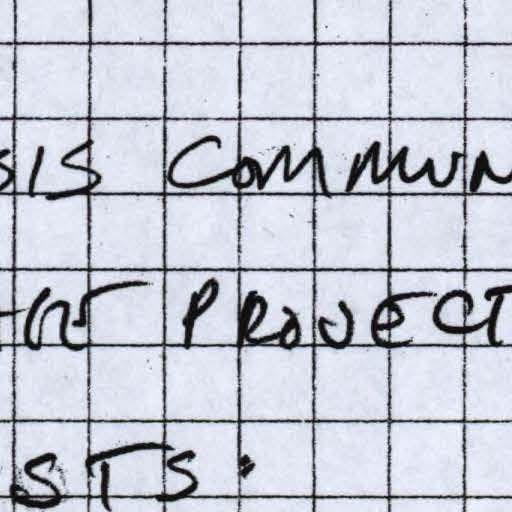 SIS COMMUN
PROJECT
STS.